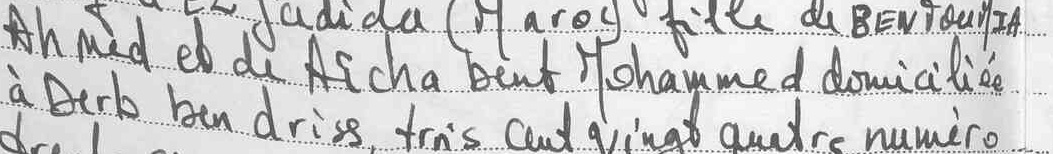 EL Jadida (Maroc) fille de BENTOUMIA
Ahmed et de Aïcha bent Mohammed domiciliée
à Derb ben driss, trois cent vingt quatre numéro